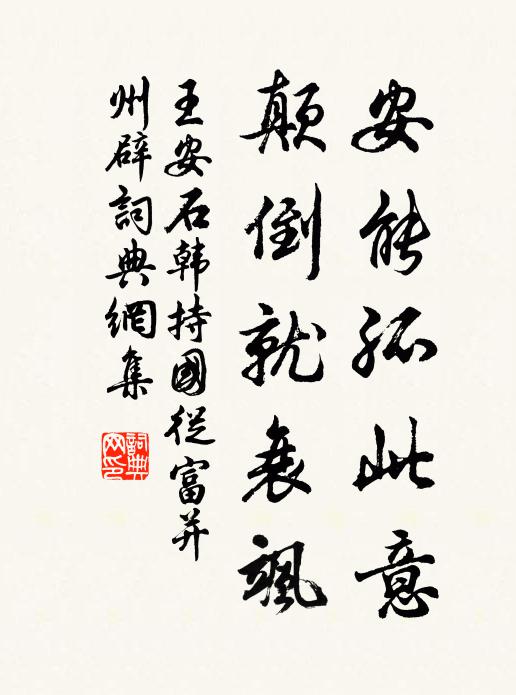 安能孤此意
颠倒就衰飒
王安石韩持國従富并
州辟詞典網集
詞典网印